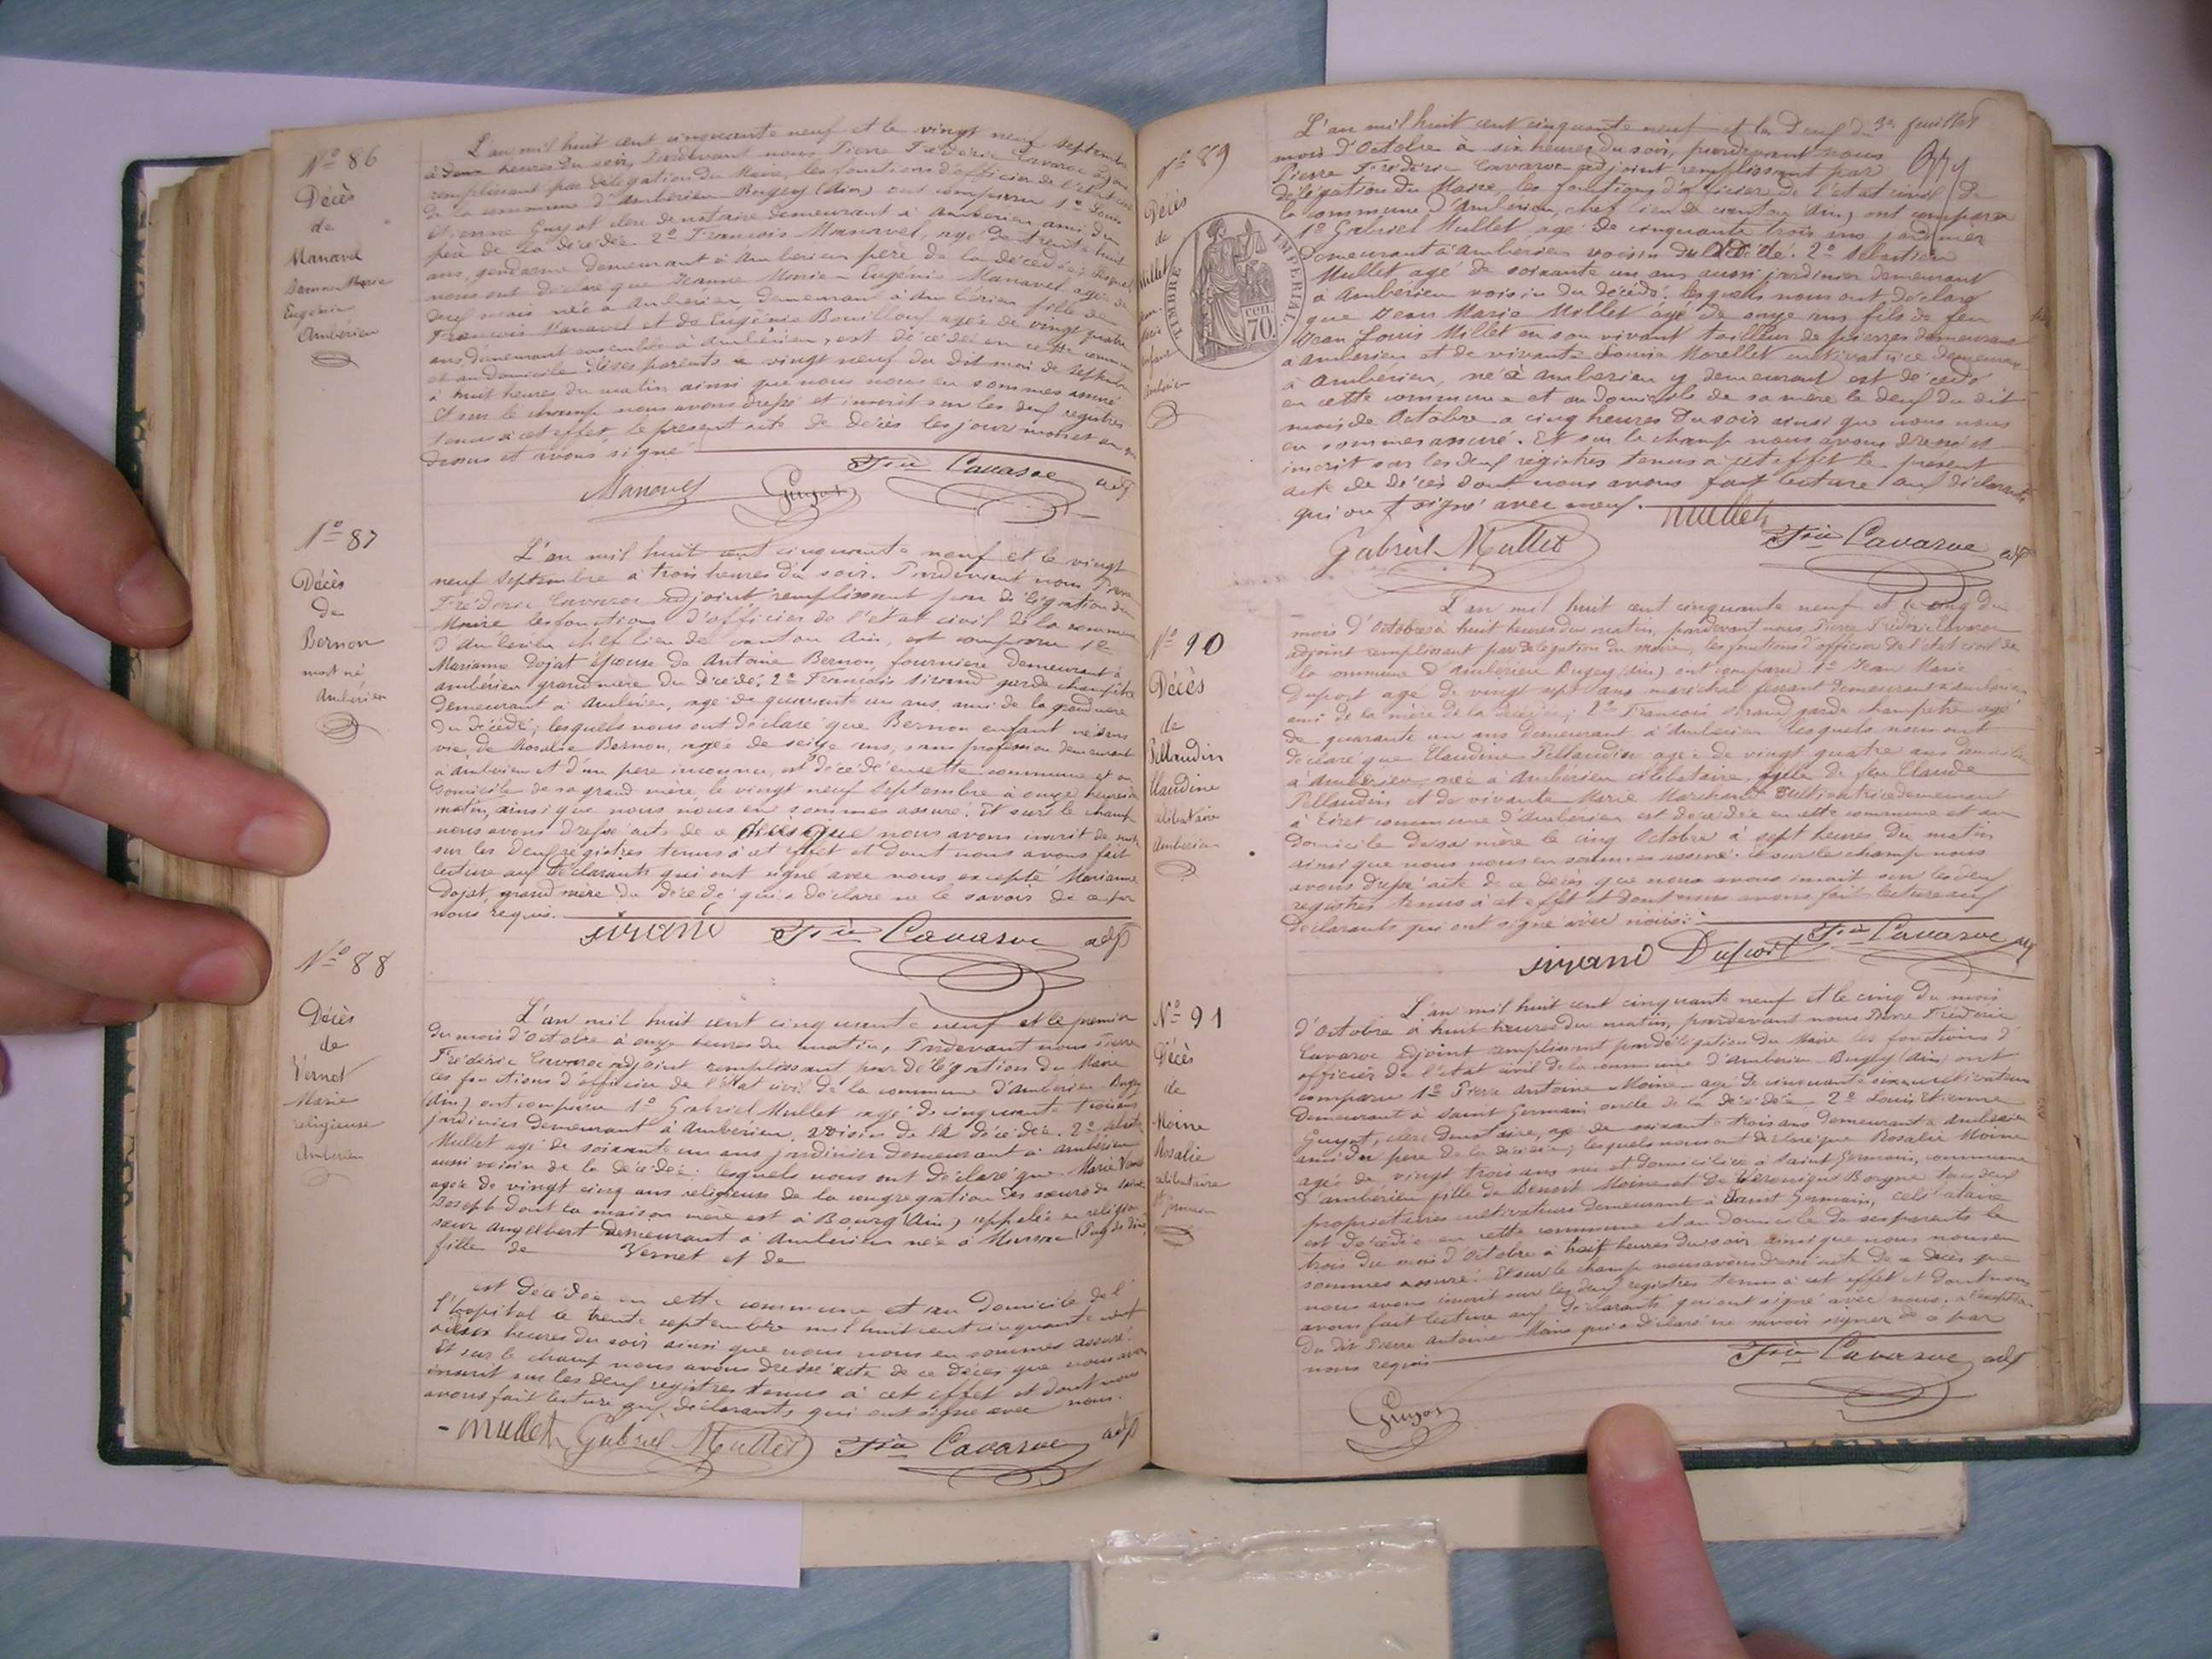 Nº 86
Décès
de
Manavel
Jeanne Marie
Eugénie
Ambérieu
L'an mil huit cent cinquante neuf et le vingt neuf septembre
à deux heures du soir, Pardevant nous Pierre Frédéric Cavaroc adjoint
remplissant par délégation du Maire, les fonctions d'officier de l'état civil
de la commune d'Ambérieu Bugey (Ain) ont comparu 1º Louis
Etienne Guyot clerc de notaire demeurant à Ambérieu ami du
père de la décédée 2º François Manavel, agé de trente huit
ans, gendarme demeurant à Ambérieu père de la décédée; lesquels
nous ont déclaré que Jeanne Marie Eugénie Manavel agée de
deux mois née à Ambérieu, demeurant à Ambérieu fille de
François Manavel et de Eugénie Bouilloux agée de vingt quatre
ans demeurant ensemble à Ambérieu, est décédée en cette commune
et au domicile de ses parents le vingt neuf du dit mois de septembre
à huit heures du matin ainsi que nous nous en sommes assuré
Et sur le champ nous avons dressé et inscrit sur les deux registres
tenus à cet effet le présent acte de décès les jour mois et an que
dessus et avons signé
Manavel Guyot Fric Cavaroc adjt
Nº 87
Décès
de
Bernon
mort né
Ambérieu
L'an mil huit cent cinquante neuf et le vingt
neuf septembre à trois heures du soir. Pardevant nous Pierre
Frédéric Cavaroc adjoint remplissant par délégation du
Maire les fonctions d'officier de l'état civil de la commune
d'Ambérieu chef lieu de canton Ain, est comparu 1º
Marianne Dojat épouse de Antoine Bernon, fournière demeurant à
Ambérieu grand mère du décédé. 2º François Sirand garde champêtre
demeurant à Ambérieu, agé de quarante un ans, ami de la grand mère
du décédé; lesquels nous ont déclaré que Bernon enfant né sans
vie, de Rosalie Bernon, agée de seize ans, sans profession demeurant
à Ambérieu et d'un père inconnu, est décédé en cette commune et au
domicile de sa grand mère, le vingt neuf septembre à onze heures du
matin, ainsi que nous nous en sommes assuré. Et sur le champ
nous avons dressé acte de ce décès que nous avons inscrit de suite
sur les deux registres tenus à cet effet et dont nous avons fait
lecture aux déclarants qui ont signé avec nous excepté Marianne
Dojat, grand mère du décédé qui a déclaré ne le savoir de ce par
nous requis.
sirand Fric Cavaroc adjt
Nº 88
Décès
de
Vernet
Marie
religieuse
Ambérieu
L'an mil huit cent cinquante neuf et le premier
du mois d'Octobre à onze heures du matin, Pardevant nous Pierre
Frédéric Cavaroc adjoint remplissant par délégation du Maire
les fonctions d'officier de l'état civil de la commune d'Ambérieu Bugey
(Ain) ont comparu 1º Gabriel Mullet agé de cinquante trois ans
jardinier demeurant à Ambérieu, voisin de la décédée. 2º Sébastien
Mullet agé de soixante un ans jardinier demeurant à Ambérieu
aussi voisin de la décédée: lesquels nous ont déclaré que Marie Vernet
agée de vingt cinq ans religieuse de la congrégation des sœurs de saint
Joseph dont la maison mère est à Bourg (Ain) appelée en religion
sœur Angelbert demeurant à Ambérieu née à (Puy de Dôme)
fille de Vernet et de
est décédée en cette commune et au Domicile de
l'hopital le trente septembre mil huit cent cinquante neuf
heures du soir ainsi que nous nous en sommes assuré.
Et sur le champ nous avons dressé acte de ce décès que nous avons
inscrit sur les deux registres tenus à cet effet et dont nous
avons fait lecture aux déclarants qui ont signé avec nous.
Mullet Gabriel Mullet Fric Cavaroc adjt
3e feuillet
Nº 89
Décès
de
Millet
Jean
Marie
enfant
Ambérieu
TIMBRE IMPERIAL
70 cen.
L'an mil huit cent cinquante neuf et le Deux du
mois d'Octobre à six heures du soir, pardevant nous
Pierre Frédéric Cavaroc adjoint remplissant par
délégation du Maire, les fonctions d'officier de l'état civil de
la commune d'Ambérieu, chef lieu de canton (Ain) ont comparu
1º Gabriel Mullet agé de cinquante trois ans jardinier
demeurant à Ambérieu voisin du décédé. 2º Sébastien
Mullet agé de soixante un ans aussi jardinier demeurant
à Ambérieu voisin du décédé. lesquels nous ont déclaré
que Jean Marie Millet agé de onze ans fils de feu
Jean Louis Millet en son vivant tailleur de pierres demeurant
à Ambérieu et de vivante Louise Morellet cultivatrice demeurant
à Ambérieu, né à Ambérieu y demeurant est décédé
en cette commune et au domicile de sa mère le deux du dit
mois de Octobre à cinq heures du soir ainsi que nous nous
en sommes assuré. Et sur le champ nous avons dressé et
inscrit sur les deux registres tenus à cet effet le présent
acte de décès dont nous avons fait lecture aux déclarants
qui ont signé avec nous.
Mullet
Gabriel Mullet Fric Cavaroc adjt
Nº 90
Décès
de
Pellaudin
Claudine
célibataire
Ambérieu
L'an mil huit cent cinquante neuf et le cinq du
mois d'Octobre à huit heures du matin, pardevant nous Pierre Frédéric Cavaroc
adjoint remplissant par délégation du maire, les fonctions d'officier de l'état civil de
la commune d'Ambérieu Bugey (Ain) ont comparu 1º Jean Marie
Duport agé de vingt sept ans maréchal ferrant demeurant à Ambérieu
ami de la mère de la décédée; 2º François Sirand garde champêtre agé
de quarante un ans demeurant à Ambérieu lesquels nous ont
déclaré que Claudine Pellaudin agée de vingt quatre ans domiciliée
à Ambérieu, née à Ambérieu célibataire, fille de feu Claude
Pellaudin et de vivante Marie Marchand cultivatrice demeurant
à Tiret commune d'Ambérieu est décédée en cette commune et au
domicile de sa mère le cinq Octobre à sept heures du matin
ainsi que nous nous en sommes assuré. Et sur le champ nous
avons dressé acte de ce décès que nous avons inscrit sur les deux
registres tenus à cet effet et dont nous avons fait lecture aux
déclarants qui ont signé avec nous.
sirand Duport Fric Cavaroc adjt
Nº 91
Décès
de
Moine
Rosalie
célibataire
St Germain
L'an mil huit cent cinquante neuf et le cinq du mois
d'Octobre à huit heures du matin, pardevant nous Pierre Frédéric
Cavaroc adjoint remplissant par délégation du Maire les fonctions d'
officier de l'état civil de la commune d'Ambérieu Bugey (Ain) ont
comparu 1º Pierre Antoine Moine agé de cinquante six ans cultivateur
demeurant à Saint Germain oncle de la décédée 2º Louis Etienne
Guyot, clerc de notaire, agé de soixante trois ans demeurant à Ambérieu
ami du père de la décédée; lesquels nous ont déclaré que Rosalie Moine
agée de vingt trois ans née et domiciliée à Saint Germain, commune
d'Ambérieu fille de Benoit Moine et de Véronique Borgne tous deux
propriétaires cultivateurs demeurant à Saint Germain, célibataire
est décédée en cette commune et au domicile de ses parents le
trois du mois d'Octobre à huit heures du soir ainsi que nous nous en
sommes assuré. Et sur le champ nous avons dressé acte de ce décès que
nous avons inscrit sur les deux registres tenus à cet effet et dont nous
avons fait lecture aux déclarants qui ont signé avec nous. à l'exception
du dit Pierre Antoine Moine qui a déclaré ne savoir signer de ce par
nous requis
Fric Cavaroc adjt
Guyot